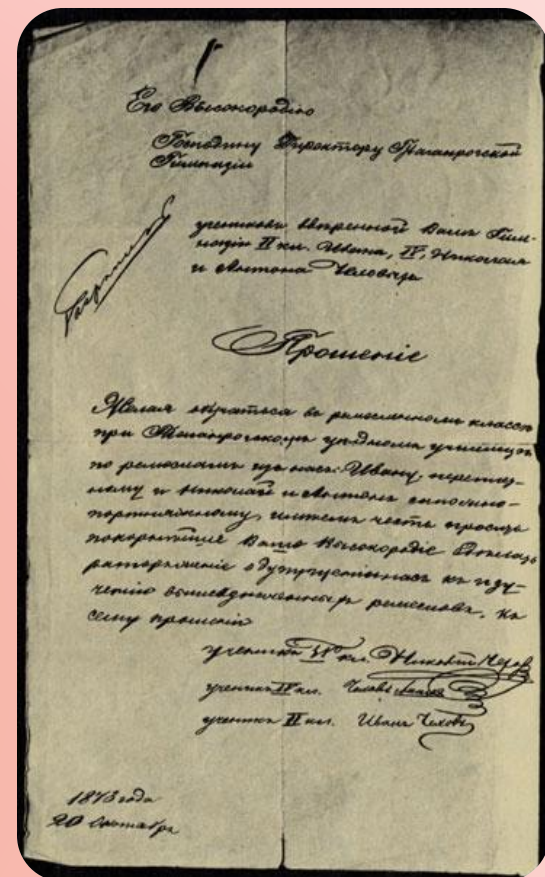 Его Высокородію
Господину Директору Таганрогской
Гимназіи
учениковъ ввѣренной Вамъ Гим-
назіи II кл. Ивана, IV, Николая
и Антона Чеховыхъ
Разрѣшаю
Прошеніе
Желая обучаться въ ремесленномъ классѣ
при Таганрогскомъ уѣздномъ училищѣ
по ремесламъ изъ насъ: Ивану, переплет-
ному и Николай и Антонъ сапожно-
портняжному, имѣемъ честь просить
покорнѣйше Ваше Высокородіе сдѣлать
распоряженіе о допущеніи насъ къ изу-
ченію вышеозначенныхъ ремеслъ, къ
сему прошенію
ученикъ кл. Николай Чеховъ
ученикъ IV кл. Чеховъ Антонъ
ученикъ II кл. Иванъ Чеховъ
1873 года
20 Октября